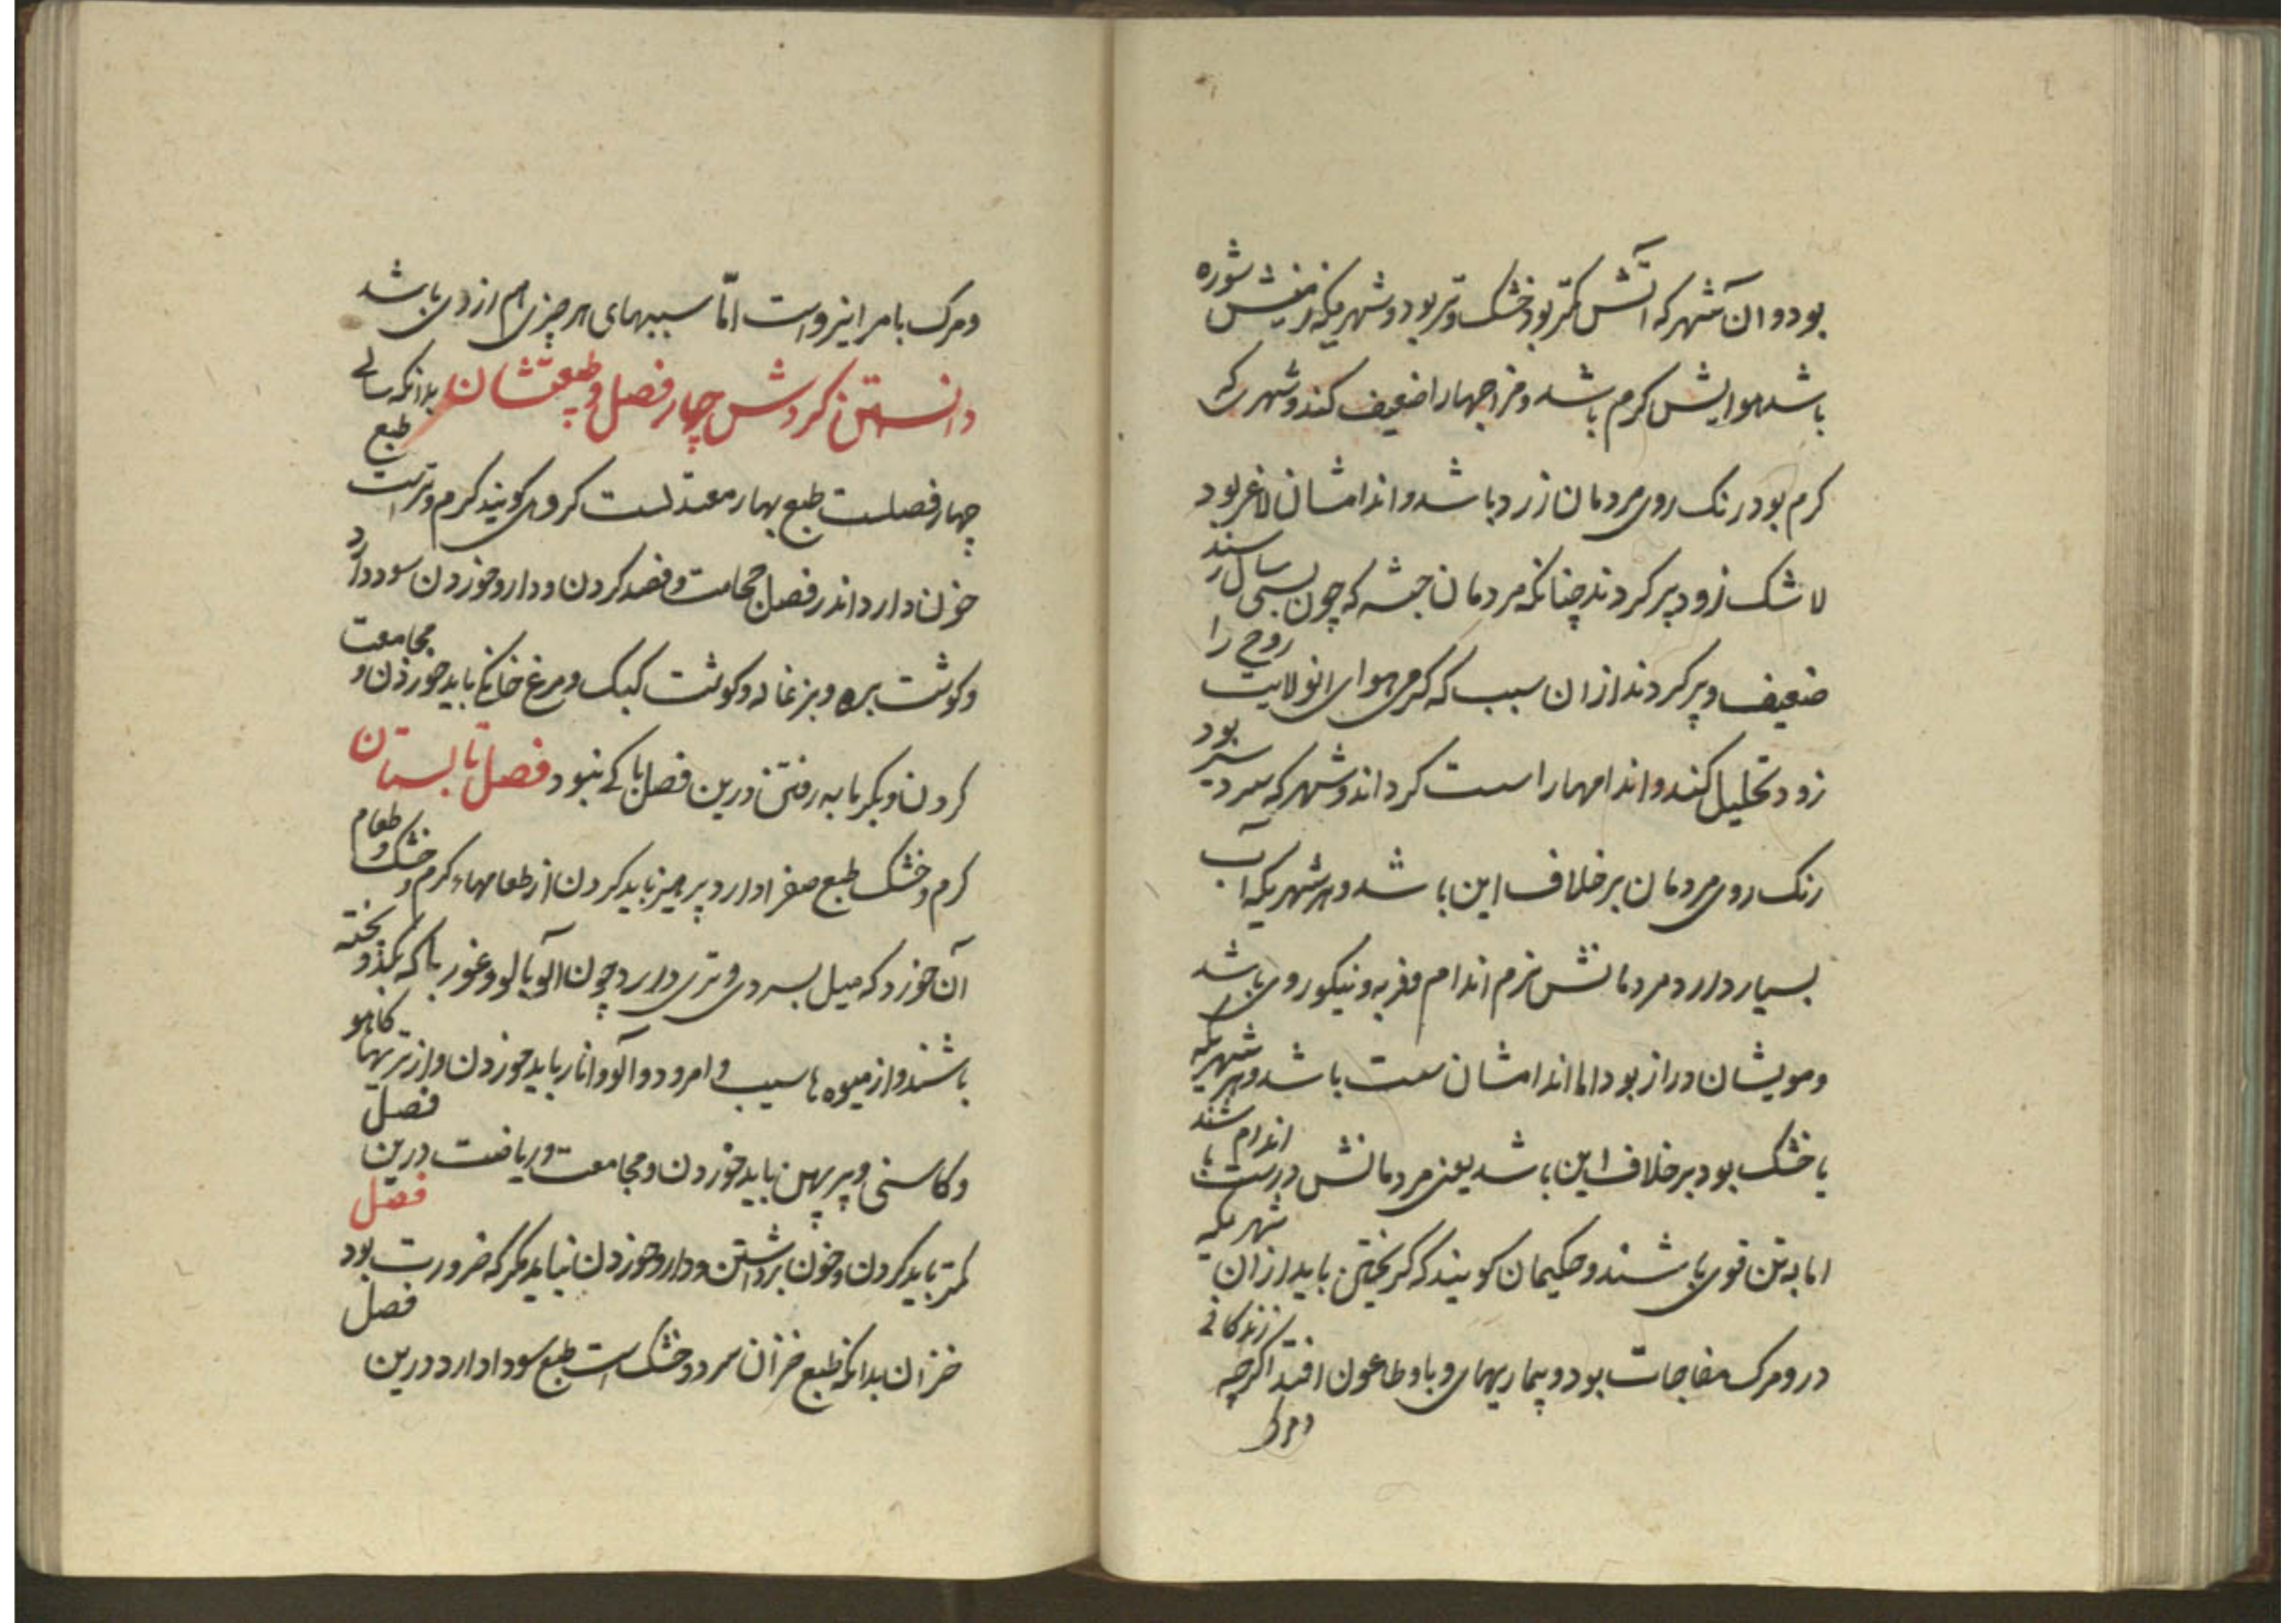 بود و ان آشهر که آتش کمتر بود خشک و تر بود و شهریکه زمینش شوره
باشد هوایش کرم باشد و مزاجهارا ضعیف کند و شهر که
کرم بود رنک روی مردمان زرد باشد و اندامشان لاغر بود
لاشک زود پیر کردند چنانکه مردمان حبشه که چون بسی سال رسند
ضعیف و پیر کردند از ان سبب که کرمی هوای انولایت روح را
زود تحلیل کند و اندامهارا سست کرداند و شهر که سردسیر بود
رنک روی مردمان بر خلاف این باشد و هر شهریکه آب
بسیار دارد مردمانش نرم اندام و فربه و نیکو روی باشد
و مویشان دراز بود اما اندامشان سست باشد و هر شهریکه
یا خشک بود بر خلاف این باشد یعنی مردمانش درست اندام باشند
اما به تن قوی باشند و حکیمان کویند که کریختن باید از ان شهریکه
درو مرک مفاجات بود و بیماریهای وبا و طاعون افتد اکرچه زندکانی
و مرک
و مرک بامر ایزد است امّا سببهای هر چیزی هم از وی باشد
دانستن کردش چهار فصل و طبعتشان بدانکه سالی
چهار فصلست طبع بهار معتدلست کروهی کویند کرم و ترست طبع
خون دارد اندر فصل حجامت و فصد کردن و دارو خوردن سود دارد
و کوشت بره و بزغاله و کوشت کبک و مرغ خانکی باید خوردن و مجامعت
کردن و بکرمابه رفتن درین فصل باکی نبود فصل تابستان
کرم و خشک طبع صفرا دارد پرهیز باید کردن از طعامهاء کرم و خشک و طعام
آن خورد که میل بسردی و تری دارد چون آلو بالو و غوربا که بکدو پخته
باشند و از میوه ها سیب و امرود و آلو و انار باید خوردن و از تریها کاهو
و کاسنی و پرپهن باید خوردن و مجامعت و ریاضت درین فصل
کمتر باید کردن و خون برداشتن و دارو خوردن نباید مکر که ضرورت بود فصل
خزان بدانکه طبع خزان سرد و خشک است طبع سودا دارد درین فصل